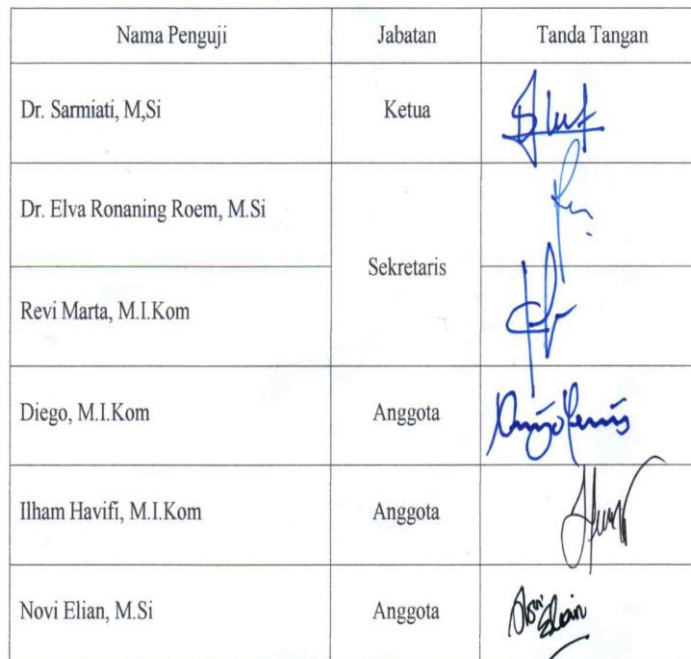 Nama Penguji Jabatan Tanda Tangan
Dr. Sarmiati, M,Si Ketua
Dr. Elva Ronaning Roem, M.Si
Sekretaris
Revi Marta, M.I.Kom
Diego, M.I.Kom Anggota
Ilham Havifi, M.I.Kom Anggota
Novi Elian, M.Si Anggota